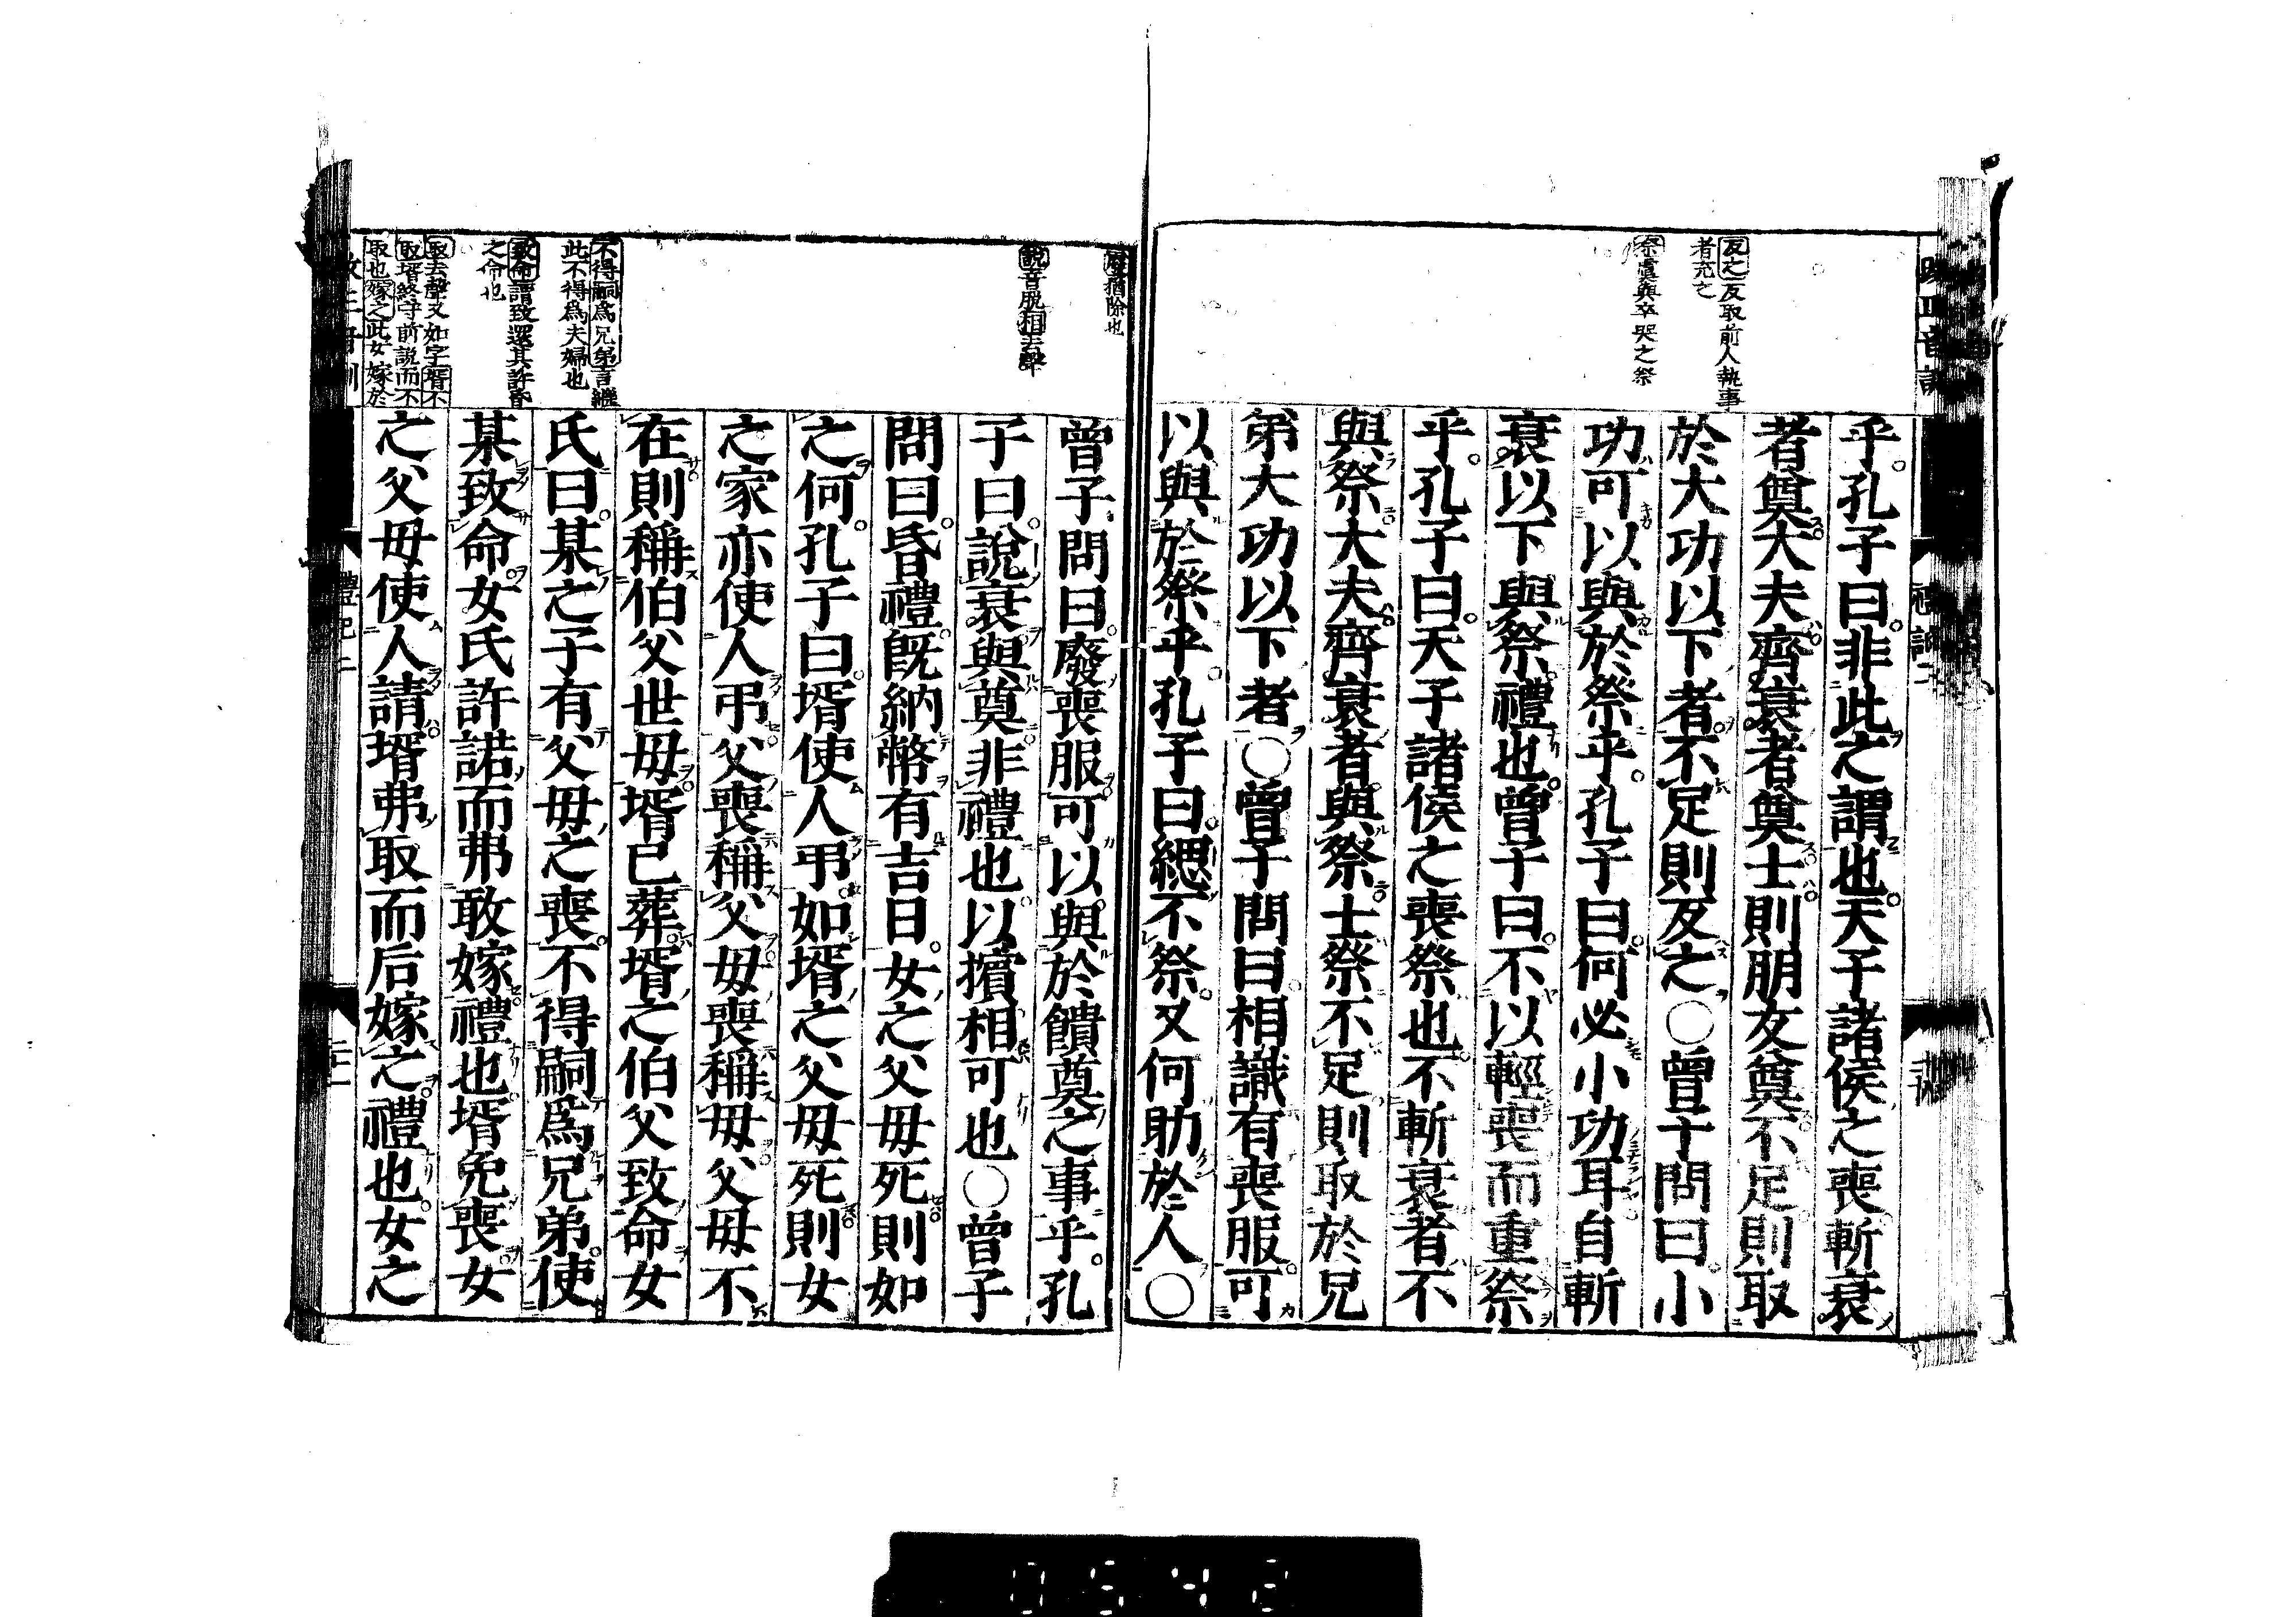 反之反取前人執事
者充之
祭虞與卒哭之祭
乎孔子曰非此之謂也天子諸侯之喪斬衰
者奠大夫齊衰者奠士則朋友奠不足則取
於大功以下者不足則反之〇曾子問曰小
功可以與於祭乎孔子曰何必小功耳自斬
衰以下與祭禮也曾子曰不以輕喪而重祭
乎孔子曰天子諸侯之喪祭也不斬衰者不
與祭大夫齊衰者與祭士祭不足則取於兄
弟大功以下者〇曾子問曰相識有喪服可
以與於祭乎孔子曰緦不祭又何助於人〇
廢猶除也
說音脫相去聲
不得嗣爲兄弟言繼
此不得爲夫婦也
致命謂致還其許昏
之命也
取去聲又如字壻不
取壻終守前說而不
取也嫁之此女嫁於
曾子問曰廢喪服可以與於饋奠之事乎孔
子曰說衰與奠非禮也以擯相可也〇曾子
問曰昏禮旣納幣有吉日女之父母死則如
之何孔子曰壻使人弔如壻之父母死則女
之家亦使人弔父喪稱父母喪稱母父母不
在則稱伯父世母壻已葬壻之伯父致命女
氏曰某之子有父母之喪不得嗣爲兄弟使
某致命女氏許諾而弗敢嫁禮也壻免喪女
之父母使人請壻弗取而后嫁之禮也女之